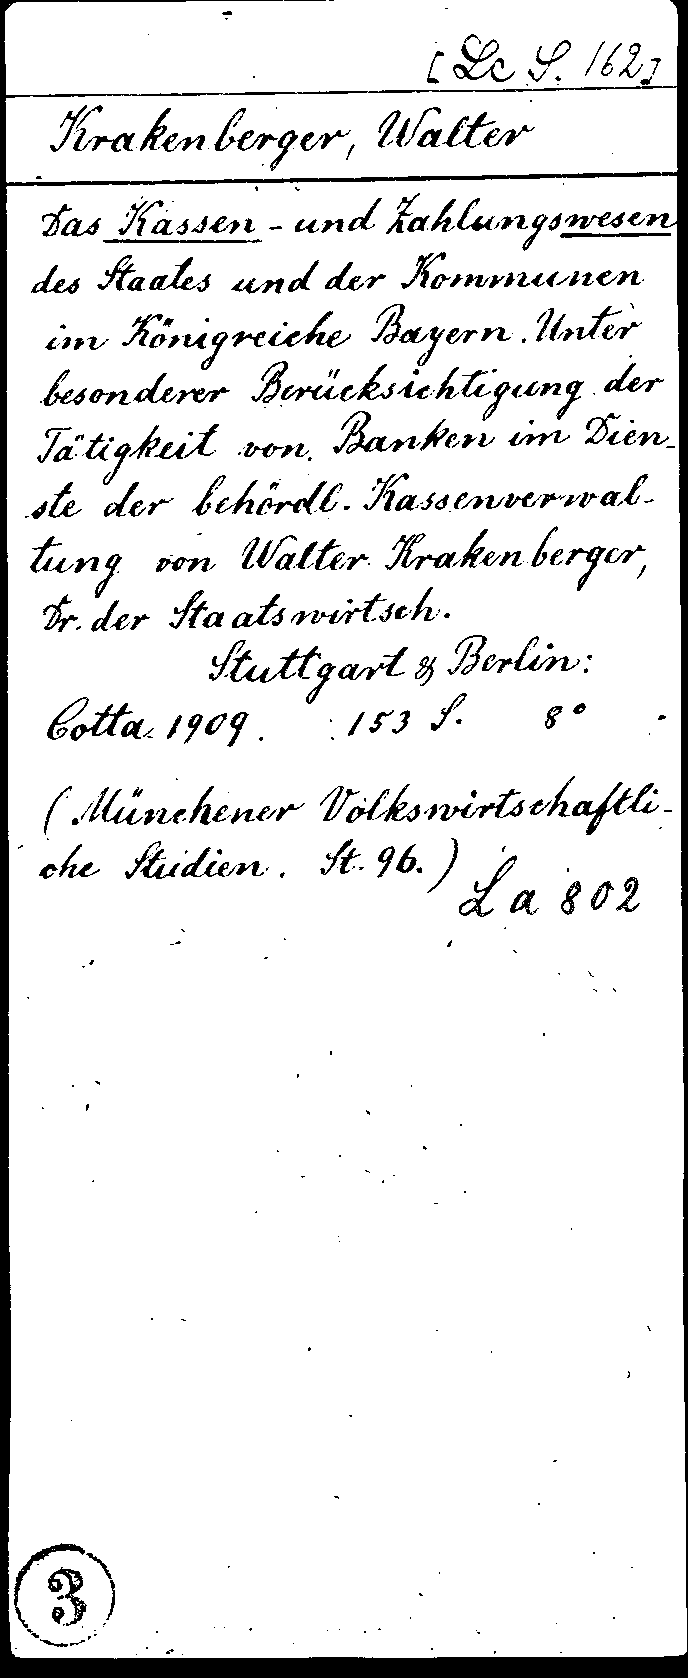 [Lc S. 162]
Krakenberger, Walter
Das Kassen- und Zahlungswesen
des Staates und der Kommunen
im Königreiche Bayern. Unter
besonderer Berücksichtigung der
Tätigkeit von Banken im Dien-
ste der behördl. Kassenverwal-
tung von Walter Krakenberger,
Dr. der Staatswirtsch.
Stuttgart & Berlin:
Cotta 1909. 153 S. 8°
(Münchener Volkswirtschaftli-
che Studien. St. 96.)
La 802
3